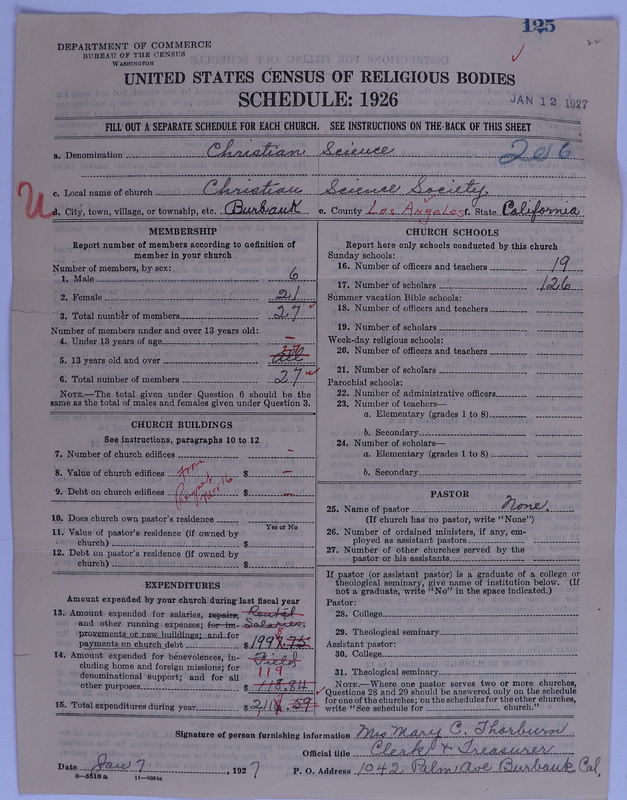 125
DEPARTMENT OF COMMERCE
BUREAU OF THE CENSUS
WASHINGTON
UNITED STATES CENSUS OF RELIGIOUS BODIES
SCHEDULE: 1926
JAN 12 1927
FILL OUT A SEPARATE SCHEDULE FOR EACH CHURCH. SEE INSTRUCTIONS ON THE BACK OF THIS SHEET
a. Denomination Christian Science 206
c. Local name of church Christian Science Society
d. City, town, village, or township, etc. Burbank e. County Los Angeles f. State California
MEMBERSHIP
Report number of members according to definition of
member in your church
Number of members, by sex:
1. Male 6
2. Female 21
3. Total number of members 27
Number of members under and over 13 years old:
4. Under 13 years of age –
5. 13 years old and over 27 all
6. Total number of members 27
NOTE.—The total given under Question 6 should be the
same as the total of males and females given under Question 3.
CHURCH BUILDINGS
See instructions, paragraphs 10 to 12
7. Number of church edifices –
8. Value of church edifices From $ –
9. Debt on church edifices $ –
10. Does church own pastor's residence
Yes or No
11. Value of pastor's residence (if owned by
church) $
12. Debt on pastor's residence (if owned by
church) $
EXPENDITURES
Amount expended by your church during last fiscal year
13. Amount expended for salaries, repairs, Rental
and other running expenses; for im- Salaries,
provements or new buildings; and for
payments on church debt $ 1998.75
14. Amount expended for benevolences, in- Field
cluding home and foreign missions; for
denominational support; and for all 119
other purposes 118.84
15. Total expenditures during year $ 2,118.59
CHURCH SCHOOLS
Report here only schools conducted by this church
Sunday schools:
16. Number of officers and teachers 19
17. Number of scholars 126
Summer vacation Bible schools:
18. Number of officers and teachers
19. Number of scholars
Week-day religious schools:
20. Number of officers and teachers
21. Number of scholars
Parochial schools:
22. Number of administrative officers
23. Number of teachers—
a. Elementary (grades 1 to 8)
b. Secondary
24. Number of scholars—
a. Elementary (grades 1 to 8)
b. Secondary
PASTOR
25. Name of pastor None.
(If church has no pastor, write "None")
26. Number of ordained ministers, if any, em-
ployed as assistant pastors
27. Number of other churches served by the
pastor or his assistants
If pastor (or assistant pastor) is a graduate of a college or
theological seminary, give name of institution below. (If
not a graduate, write "No" in the space indicated.)
Pastor:
28. College
29. Theological seminary
Assistant pastor:
30. College
31. Theological seminary
NOTE.—Where one pastor serves two or more churches,
Questions 28 and 29 should be answered only on the schedule
for one of the churches; on the schedules for the other churches,
write "See schedule for church."
Signature of person furnishing information Mrs Mary C. Thorburn
Official title Clerk & Treasurer
Date Jan 7, 1927 P. O. Address 1042 Palm Ave Burbank Cal.
8—5518a